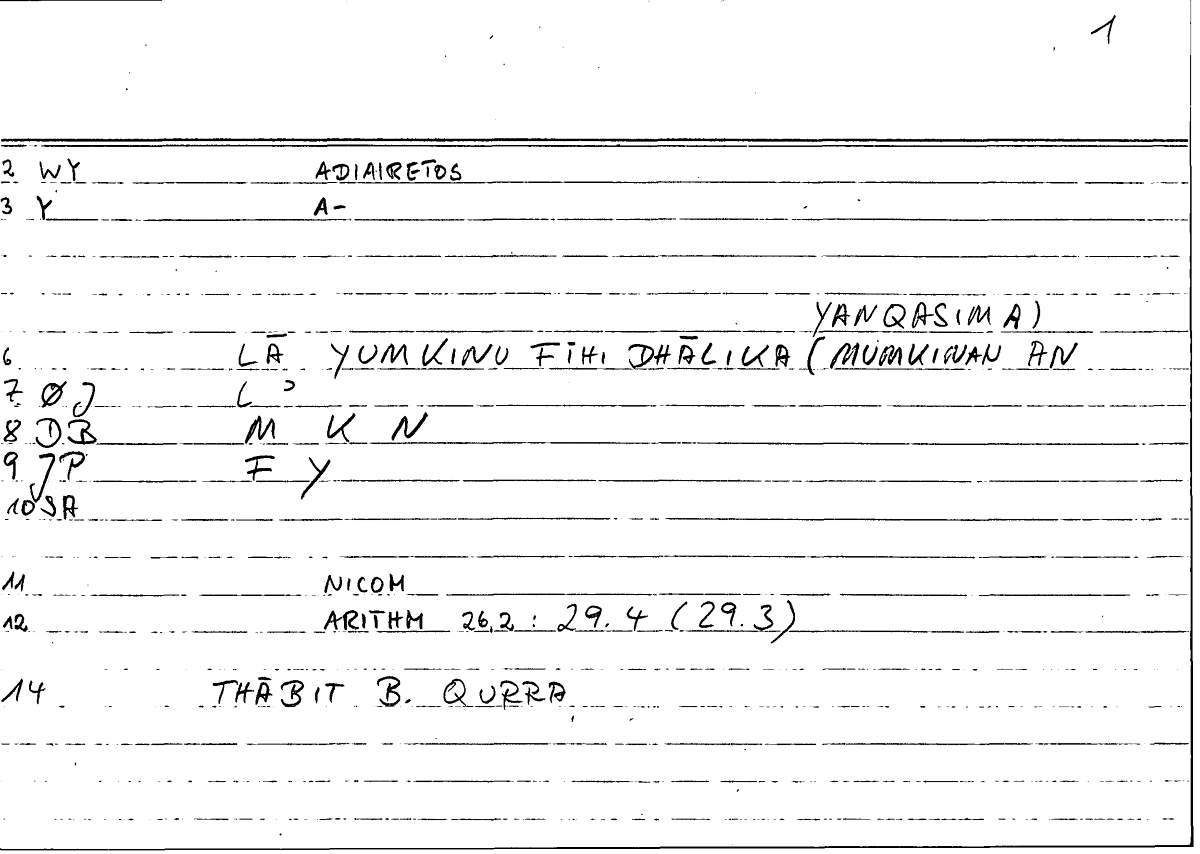 1
2 WY ADIAIRETOS
3 Y A-
YANQASIMA)
6 LĀ YUMKINU FĪHI DHĀLIKA (MUMKINAN AN
7 ØJ L ʾ
8 DB M K N
9 JP F Y
10 SA
11 NICOM
12 ARITHM 26,2 : 29.4 (29.3)
14 THĀBIT B. QURRA